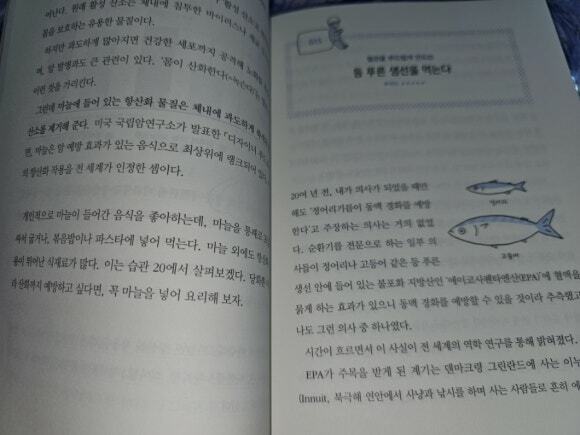 몸을 보호하는 유용한 물질이다.
하지만 과도하게 많아지면 건강한 세포까지 공격해
며, 암 발병과도 큰 관련이 있다. '몸이 산화한다
이런 것을 가리킨다.
그런데 마늘에 들어 있는 항산화 물질은 체내에 과도하게
산소를 제거해 준다. 미국 국립암연구소가 발표한 「디자이너
면, 마늘은 암 예방 효과가 있는 음식으로 최상위에 랭크되어
의 항산화 작용을 전 세계가 인정한 셈이다.
개인적으로 마늘이 들어간 음식을 좋아하는데, 마늘을 통째로
굽거나, 볶음밥이나 파스타에 넣어 먹는다. 마늘 외에도
뛰어난 식재료가 많다. 이는 습관 20에서 살펴보겠다.
산화까지 예방하고 싶다면, 꼭 마늘을 넣어 요리해 보자.
혈관을 부드럽게 만드는
등 푸른 생선을 먹는다
20여 년 전, 내가 의사가 되었을 때만
해도 '정어리기름이 동맥 경화를 예방
한다'고 주장하는 의사는 거의 없었
다. 순환기를 전문으로 하는 일부 의
사들이 정어리나 고등어 같은 등 푸른
정어리
고등어
생선 안에 들어 있는 불포화 지방산인 '에이코사펜타엔산(EPA)'에 혈액을
묽게 하는 효과가 있으니 동맥 경화를 예방할 수 있을 것이라 추측했고
나도 그런 의사 중 하나였다.
시간이 흐르면서 이 사실이 전 세계의 역학 연구를 통해 밝혀졌다.
EPA가 주목을 받게 된 계기는 덴마크령 그린란드에 사는 이누
(Innuit, 북극해 연안에서 사냥과 낚시를 하며 사는 사람들로 흔히 에